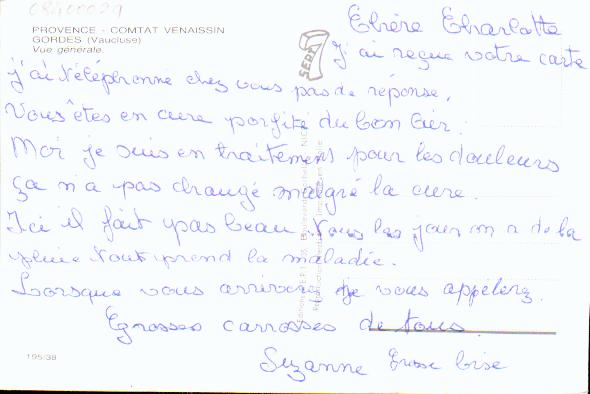 08400029
PROVENCE - COMTAT VENAISSIN
GORDES (Vaucluse)
Vue générale.
Chère Charlotte
J'ai reçue votre carte
j'ai téléphonne chez vous pas de réponse.
Vous êtes en cure porfité du bon air.
Moi je suis en traitement pour les douleurs
ça n'a pas changé malgré la cure.
Ici il fait pas beau. Tous les jour on a de la
pluie tout prend la maladie.
Lorsque vous arriverez je vous appelerz.
Grosses carrosses de tous.
Suzanne Grosse bise
195/38